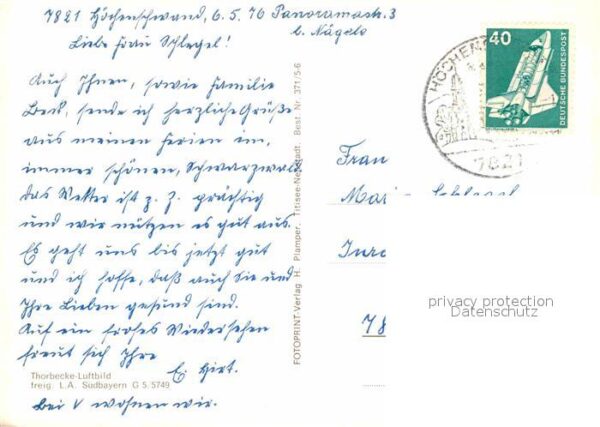 7821 Höchenschwand, 6.5.76 Panoramastr. 3
b. Nägele
Liebe Frau Schlegel!
Auch Ihnen, sowie Familie
Beck, sende ich herzliche Grüße
aus meinen Ferien im,
immer schönen, Schwarzwald
das Wetter ist z. Z. prächtig
und wir nützen es gut aus.
Es geht uns bis jetzt gut
und ich hoffe, daß auch Sie und
Ihre Lieben gesund sind.
Auf ein frohes Wiedersehen
freut sich Ihre
E. Hirt.
Thorbecke-Luftbild
freig. L.A. Südbayern G 5.5749
Bei V wohnen wir.
FOTOPRINT-Verlag H. Plamper, Titisee-Neustadt, Best. Nr. 371/5-6
40
DEUTSCHE BUNDESPOST
7821
Frau
78
privacy protection
Datenschutz